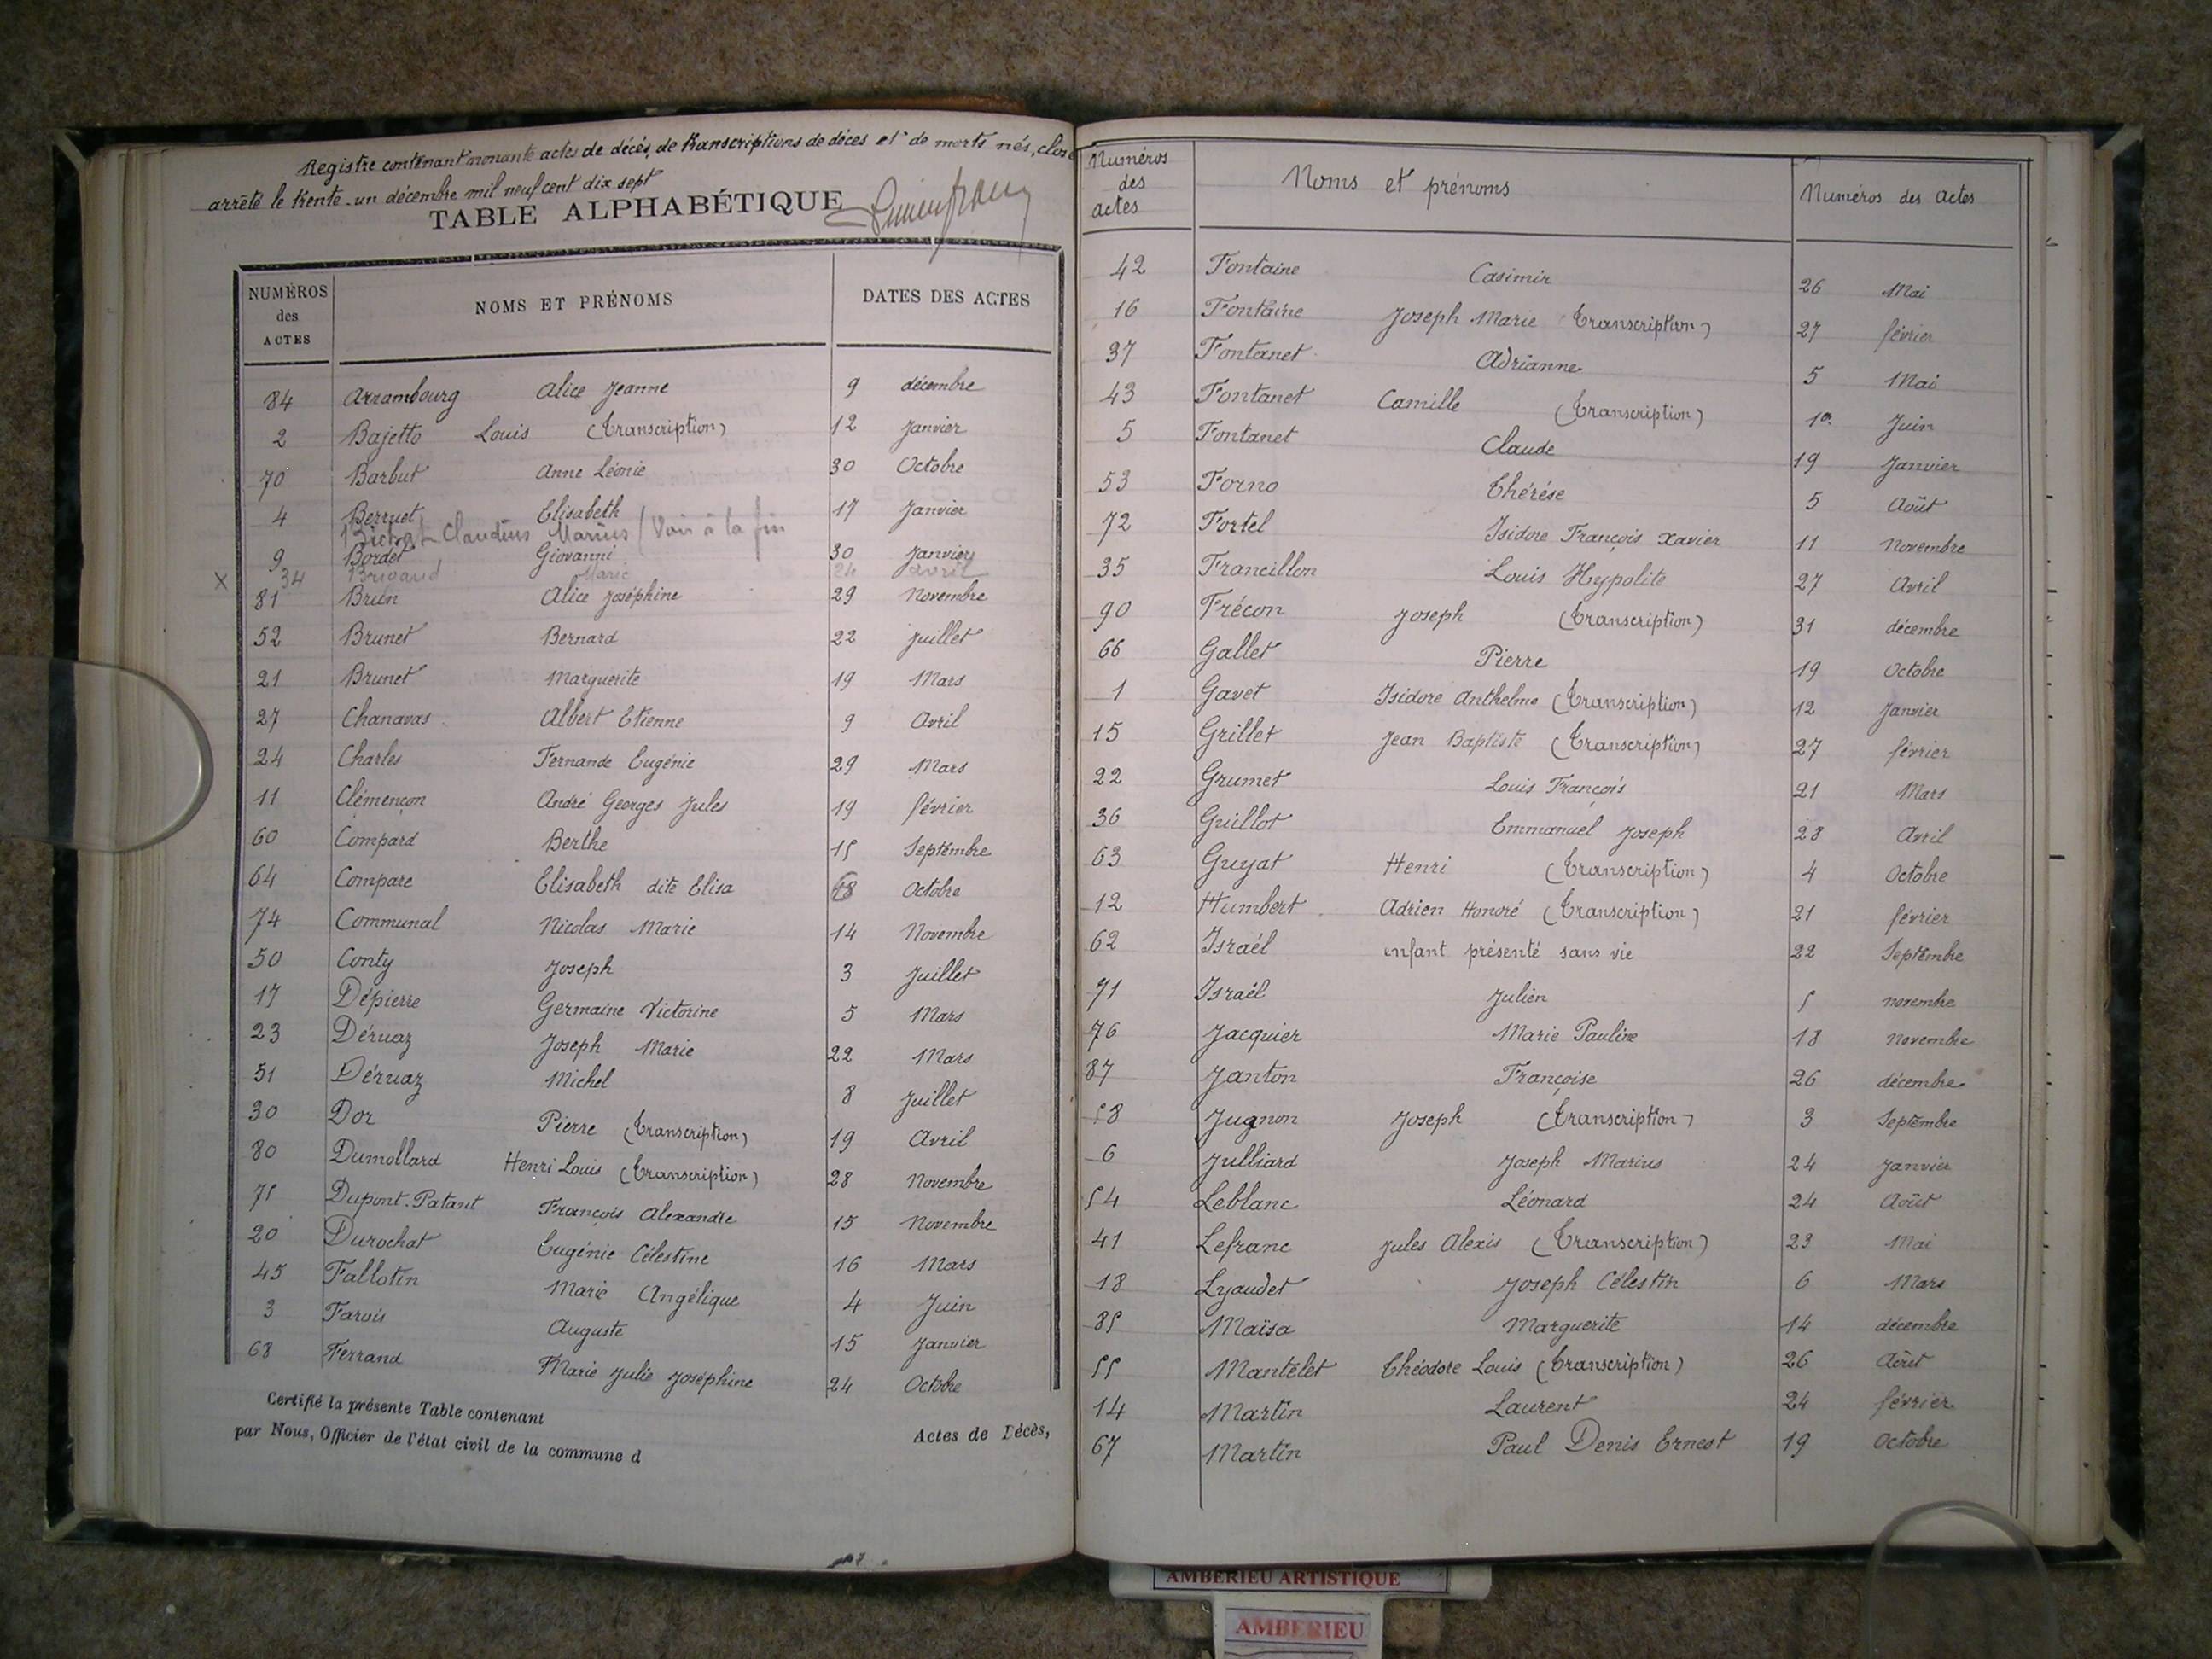 Registre contenant nonante actes de décès, de transcriptions de décès et de morts nés, clos
arrêté le trente-un décembre mil neuf cent dix sept
TABLE ALPHABÉTIQUE
NUMÉROS des ACTES NOMS ET PRÉNOMS DATES DES ACTES
84 Arrambourg Alice Jeanne 9 décembre
2 Bajetto Louis (Transcription) 12 Janvier
70 Barbut Anne Léonie 30 Octobre
4 Berruet Elisabeth 17 Janvier
Bichat Claudius Marius / Voir à la fin
9 Bordet Giovanni 30 Janvier
x 34 Brigand Marie 24 avril
81 Brun Alice Joséphine 29 Novembre
52 Brunet Bernard 22 Juillet
21 Brunet Marguerite 19 Mars
27 Chanavas Albert Etienne 9 Avril
24 Charles Fernande Eugénie 29 Mars
11 Clémençon André Georges Jules 19 février
60 Compard Berthe 15 Septembre
64 Compare Elisabeth dite Elisa Octobre
74 Communal Nicolas Marie 14 Novembre
50 Conty Joseph 3 Juillet
17 Dépierre Germaine Victorine 5 Mars
23 Déruaz Joseph Marie 22 Mars
51 Déruaz Michel 8 Juillet
30 Dor Pierre (Transcription) 19 Avril
80 Dumollard Henri Louis (Transcription) 28 Novembre
75 Dupont-Patant François Alexandre 15 Novembre
20 Durochat Eugénie Célestine 16 Mars
45 Fallotin Marie Angélique 4 Juin
3 Farvis Auguste 15 Janvier
68 Ferrand Marie Julie Joséphine 24 Octobre
Certifié la présente Table contenant Actes de Décès,
par Nous, Officier de l'état civil de la commune d
Numéros des actes Noms et prénoms Numéros des actes
42 Fontaine Casimir 26 Mai
16 Fontaine Joseph Marie (Transcription) 27 février
37 Fontanet Adrianne 5 Mai
43 Fontanet Camille (Transcription) 1er Juin
5 Fontanet Claude 19 Janvier
53 Forno Thérése 5 Août
72 Fortel Isidore François Xavier 11 Novembre
35 Francillon Louis Hypolite 27 Avril
90 Frécon Joseph (Transcription) 31 décembre
66 Gallet Pierre 19 Octobre
1 Gavet Isidore Anthelme (Transcription) 12 Janvier
15 Grillet Jean Baptiste (Transcription) 27 février
22 Grumet Louis François 21 Mars
36 Guillot Emmanuel Joseph 28 Avril
63 Guyat Henri (Transcription) 4 Octobre
12 Humbert Adrien Honoré (Transcription) 21 février
62 Israél enfant présenté sans vie 22 Septembre
71 Israél Julien 5 novembre
76 Jacquier Marie Pauline 18 Novembre
87 Janton Françoise 26 décembre
58 Jugnon Joseph (Transcription) 3 Septembre
6 Julliard Joseph Marius 24 Janvier
54 Leblanc Léonard 24 Août
41 Lefranc Jules Alexis (Transcription) 23 Mai
18 Lyaudet Joseph Célestin 6 Mars
85 Maïsa Marguerite 14 décembre
55 Mantelet Théodore Louis (Transcription) 26 Août
14 Martin Laurent 24 février
67 Martin Paul Denis Ernest 19 Octobre
AMBERIEU ARTISTIQUE
AMBERIEU